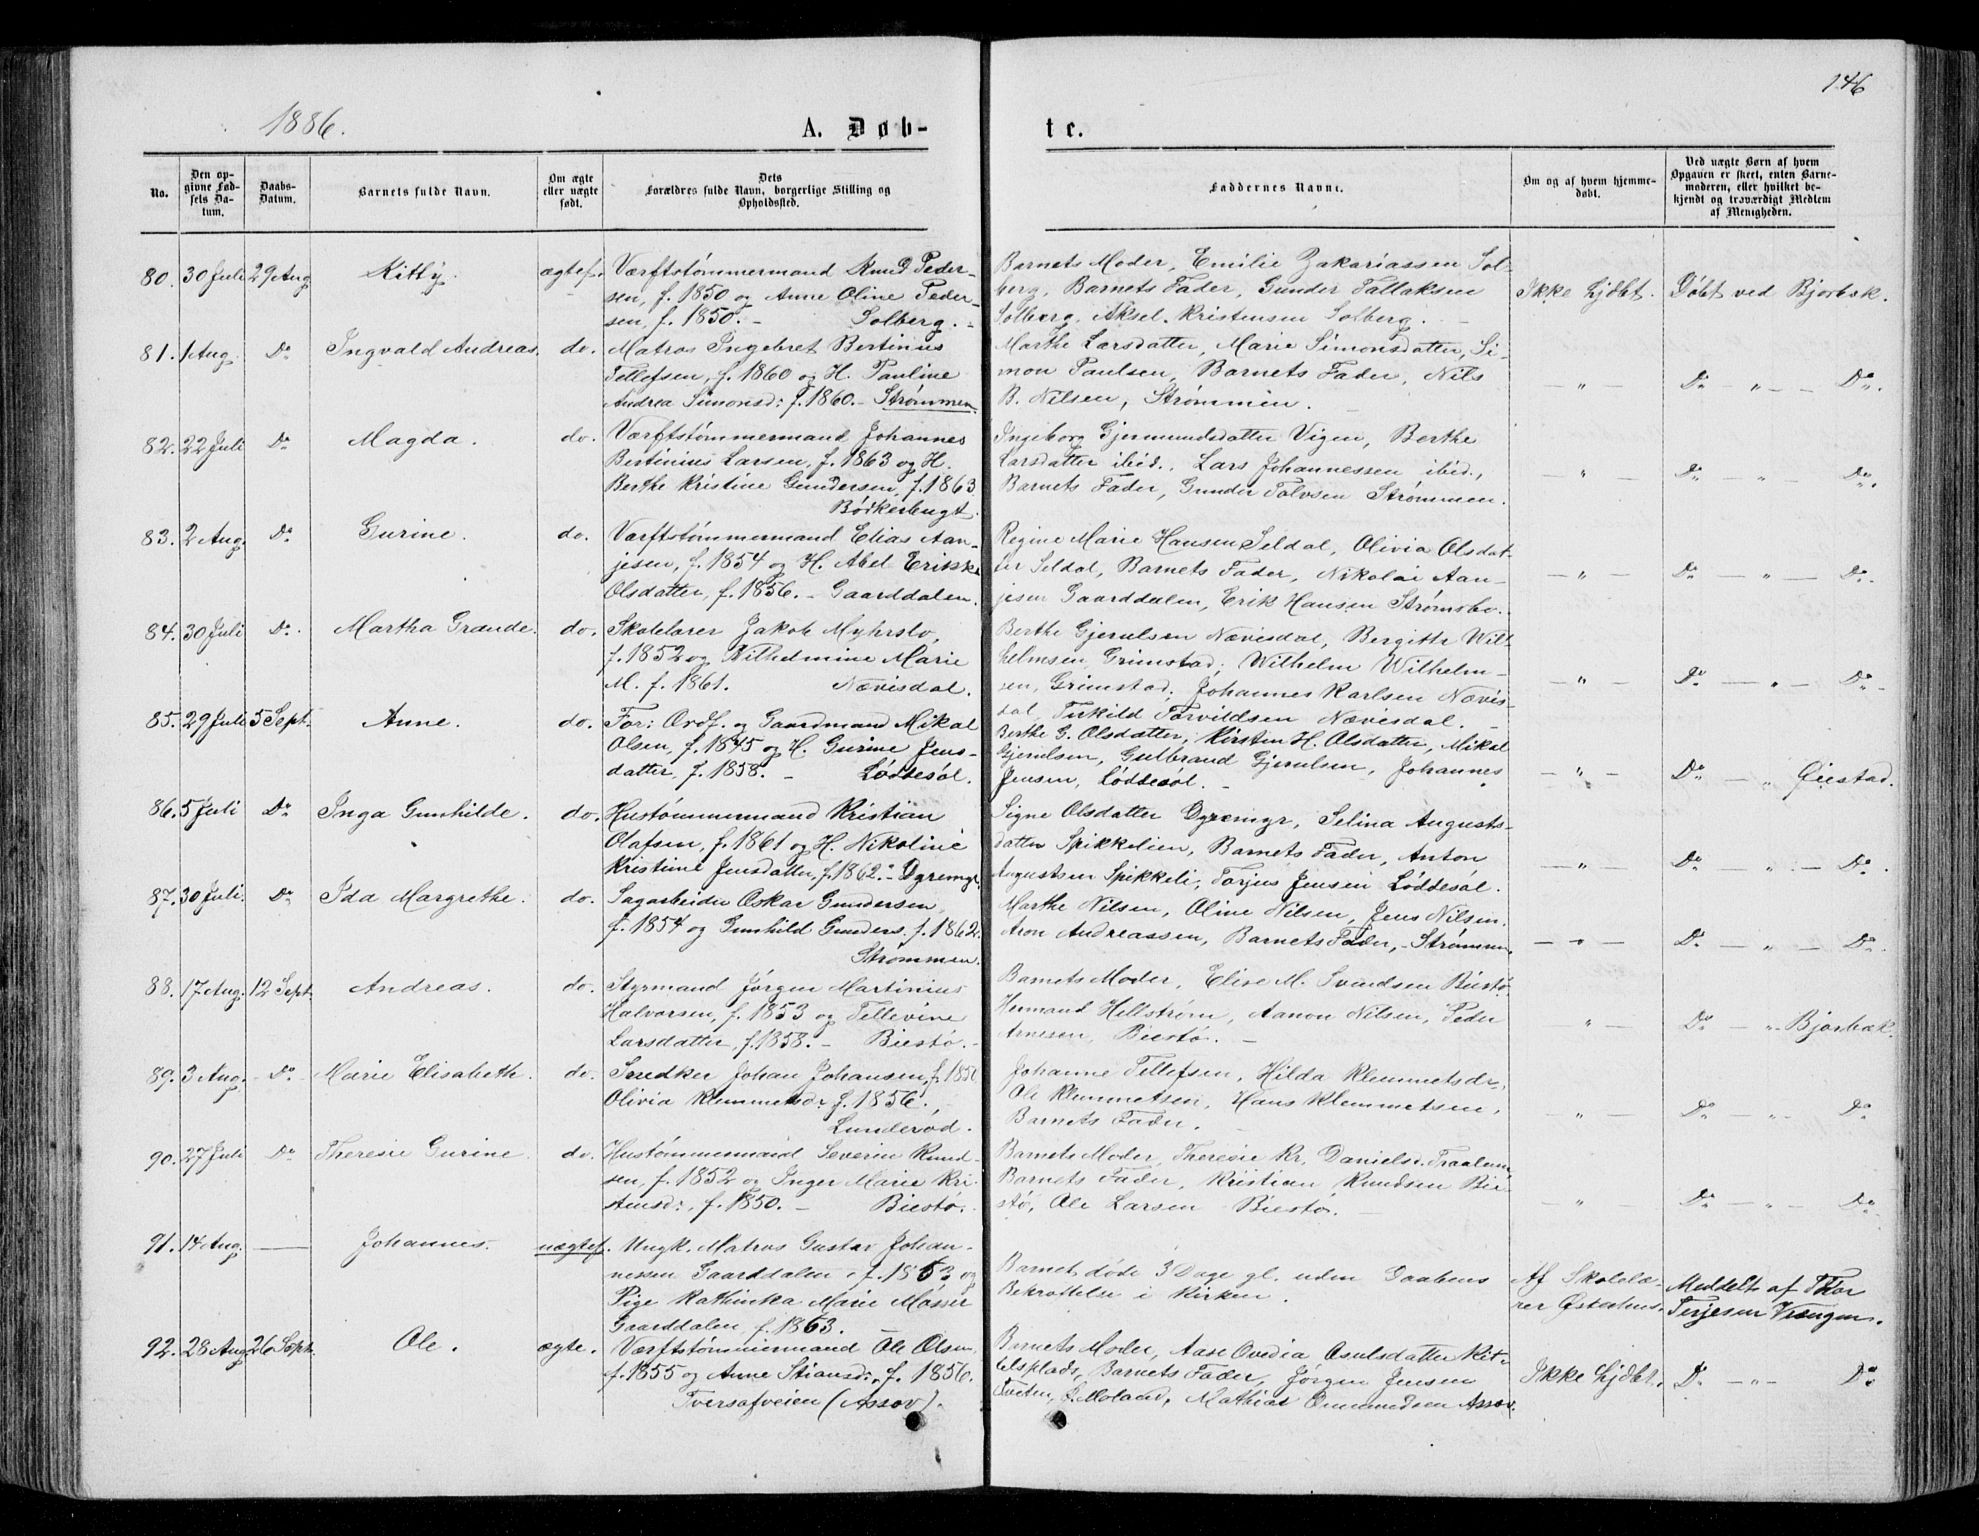 146
1886.
A. Døb-
te.
No.
Den op-
givne Fød-
sels Da-
tum.
Daabs-
Datum.
Barnets fulde Navn.
Om ægte
eller uægte
født.
Dets
Forældres fulde Navn, borgerlige Stilling og
Opholdssted.
Faddernes Navne.
Om og af hvem hjemme-
døbt.
Ved uægte Børn af hvem
Opgaven er skeet, enten Barne-
moderen, eller hvilket be-
kjendt og troværdigt Medlem
af Menigheden.
80. 30 Juli 29 Aug Kitty. ægtef. Værftstømmermand Knud Peder-
sen, f. 1850 og Anne Oline Peder-
sen, f. 1850. - Solberg. -
Barnets Moder, Emilie Zakariassen Sol-
berg, Barnets Fader, Gunder Tallaksen
Solberg, Aksel Kristensen Solberg. -
Ikke hjdbt. Døbt ved Bjorbæk.
81. 1 Aug. Do Ingvald Andreas. do. Matros Ingebret Bertinius
Tellefsen, f. 1860 og H. Pauline
Andrea Simonsd: f. 1860. - Strømmen.
Marthe Larsdatter, Marie Simonsdatter, Si-
mon Paulsen, Barnets Fader, Nils
B. Nilsen, Strømmen. -
- " - Do - " - - Do.
82. 22 Juli Do Magda. do. Værftstømmermand Johannes
Bertinius Larsen, f. 1863 og H.
Berthe Kristine Gundersen, f. 1863
Bødkerbugt.
Ingeborg Gjermundsdatter Vigen, Berthe
Larsdatter ibid., Lars Johannessen ibid.,
Barnets Fader, Gunder Tolvsen Strømmen.
- " - Do - " - Do.
83. 2 Aug. Do Gurine. do. Værftstømmermand Elias Aan-
jesen, f. 1854 og H. Abel Erikke
Olsdatter, f. 1856. - Gaarddalen.
Regine Marie Hansen Seldal, Olivia Olsdat-
ter Seldal, Barnets Fader, Nikolai Aan-
jesen Gaarddalen, Erik Hansen Strømsbo.
- " - Do - " - Do.
84. 30 Juli Do. Martha Grande. do. Skolelærer Jakob Myhrslo,
f. 1852 og Vilhelmine Marie
M. f. 1861. Nævisdal.
Berthe Gjerulsen Nævisdal, Bergitte Wil-
helmsen, Grimstad; Wilhelm Wilhelm-
sen, Grimstad; Johannes Karlsen Nævis-
dal, Terkild Torvildsen Nævisdal. -
- " - Do - " - Do -
85. 29 Juli 5 Sept. Anne. do. For: Ordf. og Gaardmand Mikal
Olsen, f. 1845 og H. Gurine Jens-
datter, f. 1858. - Løddesøl.
Berthe G. Olsdatter, Kirsten H. Olsdatter, Mikal
Gjerulsen, Gulbrand Gjerulsen, Johannes
Jensen, Løddesøl. -
- " - Do - " Øiestad.
86. 5 Juli Do Inga Gunhilde. do. Hustømmermand Kristian
Olafsen, f. 1861 og H. Nikoline
Kristine Jensdatter, f. 1862. - Dyremyr.
Signe Olsdatter Dyremyr, Selina Augusts-
datter Spikkelien, Barnets Fader, Anton
Augustsen Spikkeli, Torjus Jensen Løddesøl.
- " - Do - " - Do.
87. 30 Juli. Do Ida Margrethe. do. Sagarbeider Oskar Gundersen,
f. 1854 og Gunhild Gunders. f. 1862.
Strømmen.
Marthe Nilsen, Oline Nilsen, Jens Nilsen.
Aron Andreassen, Barnets Fader, - Strømmen.
- " - Do - " - Do.
88. 17 Aug. 12 Sept. Andreas. do. Styrmand Jørgen Martinius
Halvorsen, f. 1853 og Tellevine
Larsdatter, f. 1858. - Biestø. -
Barnets Moder, Elise M. Svendsen Biestø.
Hermand Hellstrøm, Aanon Nilsen, Peder
Arnesen, Biestø. -
" - Do - " - Bjorbæk.
89. 3 Aug. - Do - Marie Elisabeth. do. Snedker Johan Johansen, f. 185
Olivia Klemmetsdr f. 1856.,
Lunderød.
Johanne Tellefsen, Hilda Klemmetsdr,
Ole Klemmetsen, Hans Klemmetsen,
Barnets Fader.
" - Do - " - Do
90. 27 Juli Do Theresie Gurine. do. Hustømmermand Severin Knud-
sen, f. 1852 og Inger Marie Kri-
stensd:, f. 1850. - Biestø.
Barnets Moder, Theresie Kr. Danielsd. Traalum
Barnets Fader, Kristian Knudsen Bie-
stø, Ole Larsen Biestø. -
- " - Do - " - Do -
91. 14 Aug. — Johannes. uægtef. Ungk. Matros Gustav Johan-
nessen Gaarddalen, f. 1863 og
Pige Kathinka Marie Mosser
Gaarddalen f. 1863. -
Barnet døde 3 Dage gl. uden Daabens
Bekræftelse i Kirken.
Af Skolelæ-
rer Østerhus.
Meddelt af Thor
Terjesen Vrengen.
92. 28 Aug 26 Sept. Ole. ægte. Værftstømmermand Ole Olsen
f. 1855 og Anne Stiansd:, f. 1856.
Tversafveien (Assev).
Barnets Moder, Aase Ovedia Osulsdatter Kit-
telsplads, Barnets Fader, Jørgen Jensen
Tveten, L. Moland, Mathias Ommundsen Assev.
Ikke hjdbt. Do - " - Do